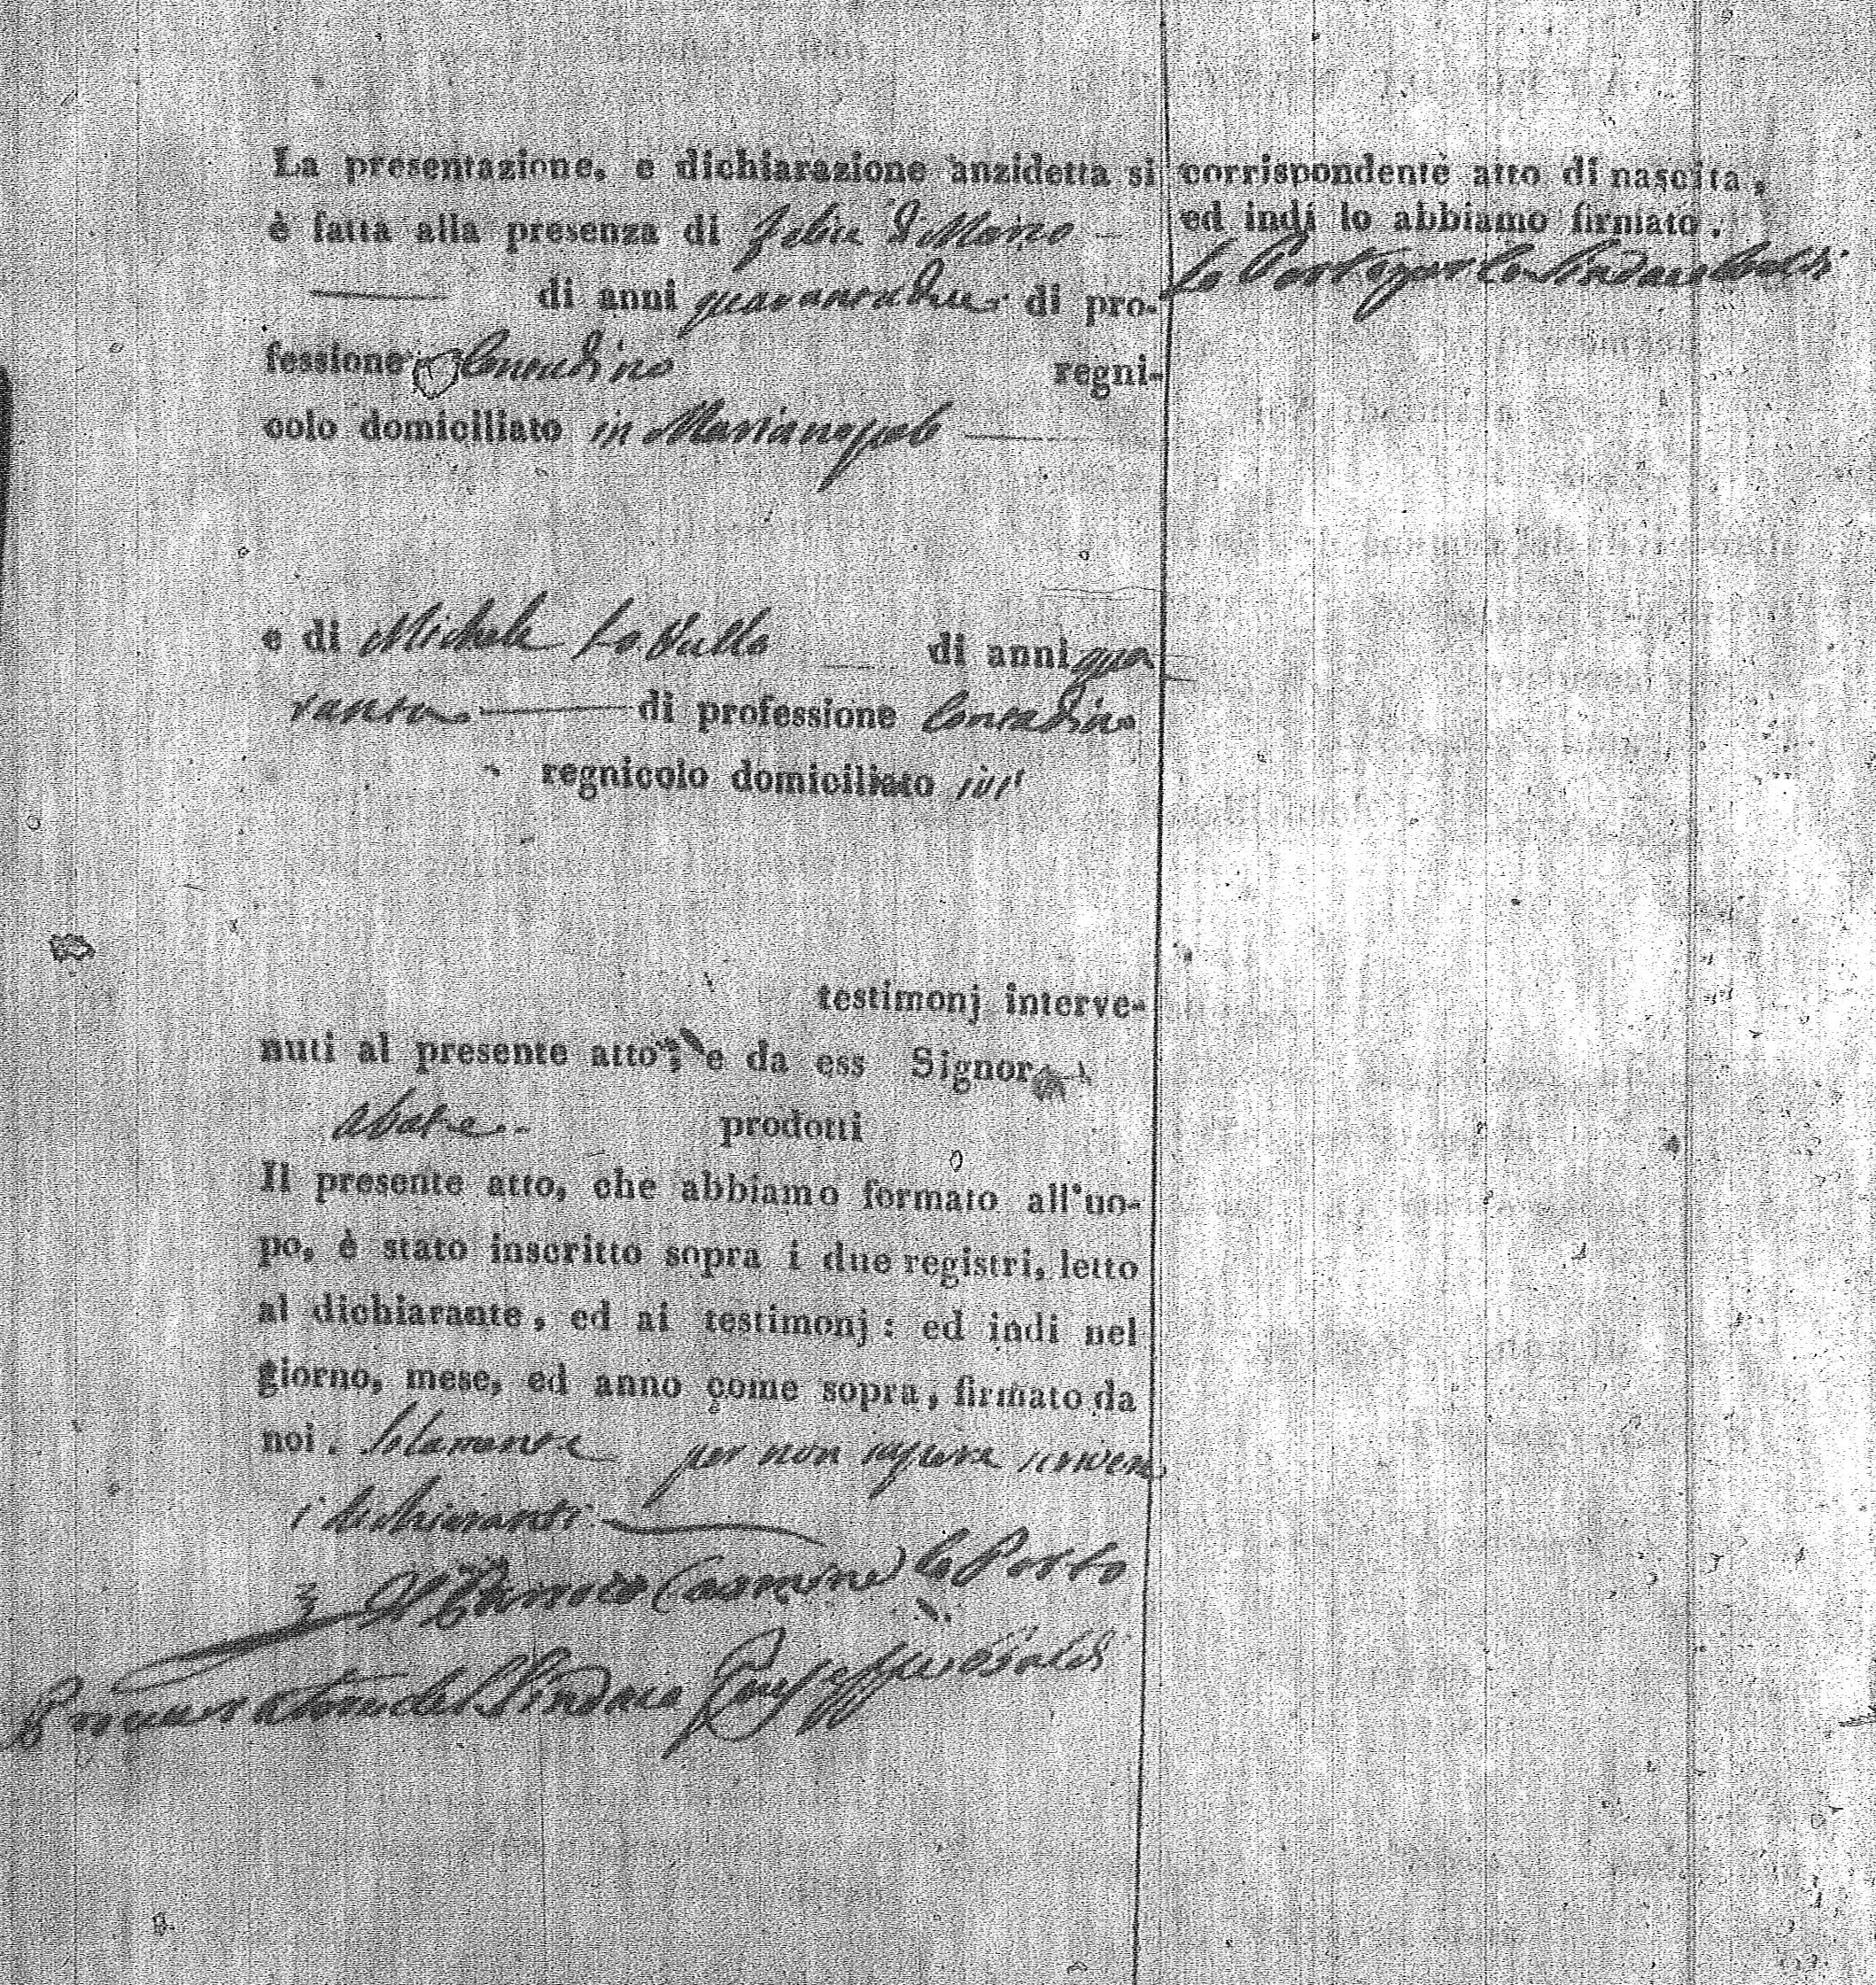 La presentazione, e dichiarazione anzidetta si
è fatta alla presenza di Felice di Maria
di anni quarantadue di pro-
fessione Contadino regni-
colo domiciliato in Marianopoli
e di Michele Lo Vullo di anni qua
ranta di professione Contadino
regnicolo domiciliato ivi
testimonj interve-
nuti al presente atto, e da ess Signor
abate prodotti
Il presente atto, che abbiamo formato all'uo-
po, è stato inscritto sopra i due registri, letto
al dichiarante, ed ai testimonj: ed indi nel
giorno, mese, ed anno come sopra, firmato da
noi. Solamente per non sapere scrivere
i dichiaranti
Lo Porto
del Sindaco
corrispondente atto di nascita,
ed indi lo abbiamo firmato.
Lo Porto Sindaco